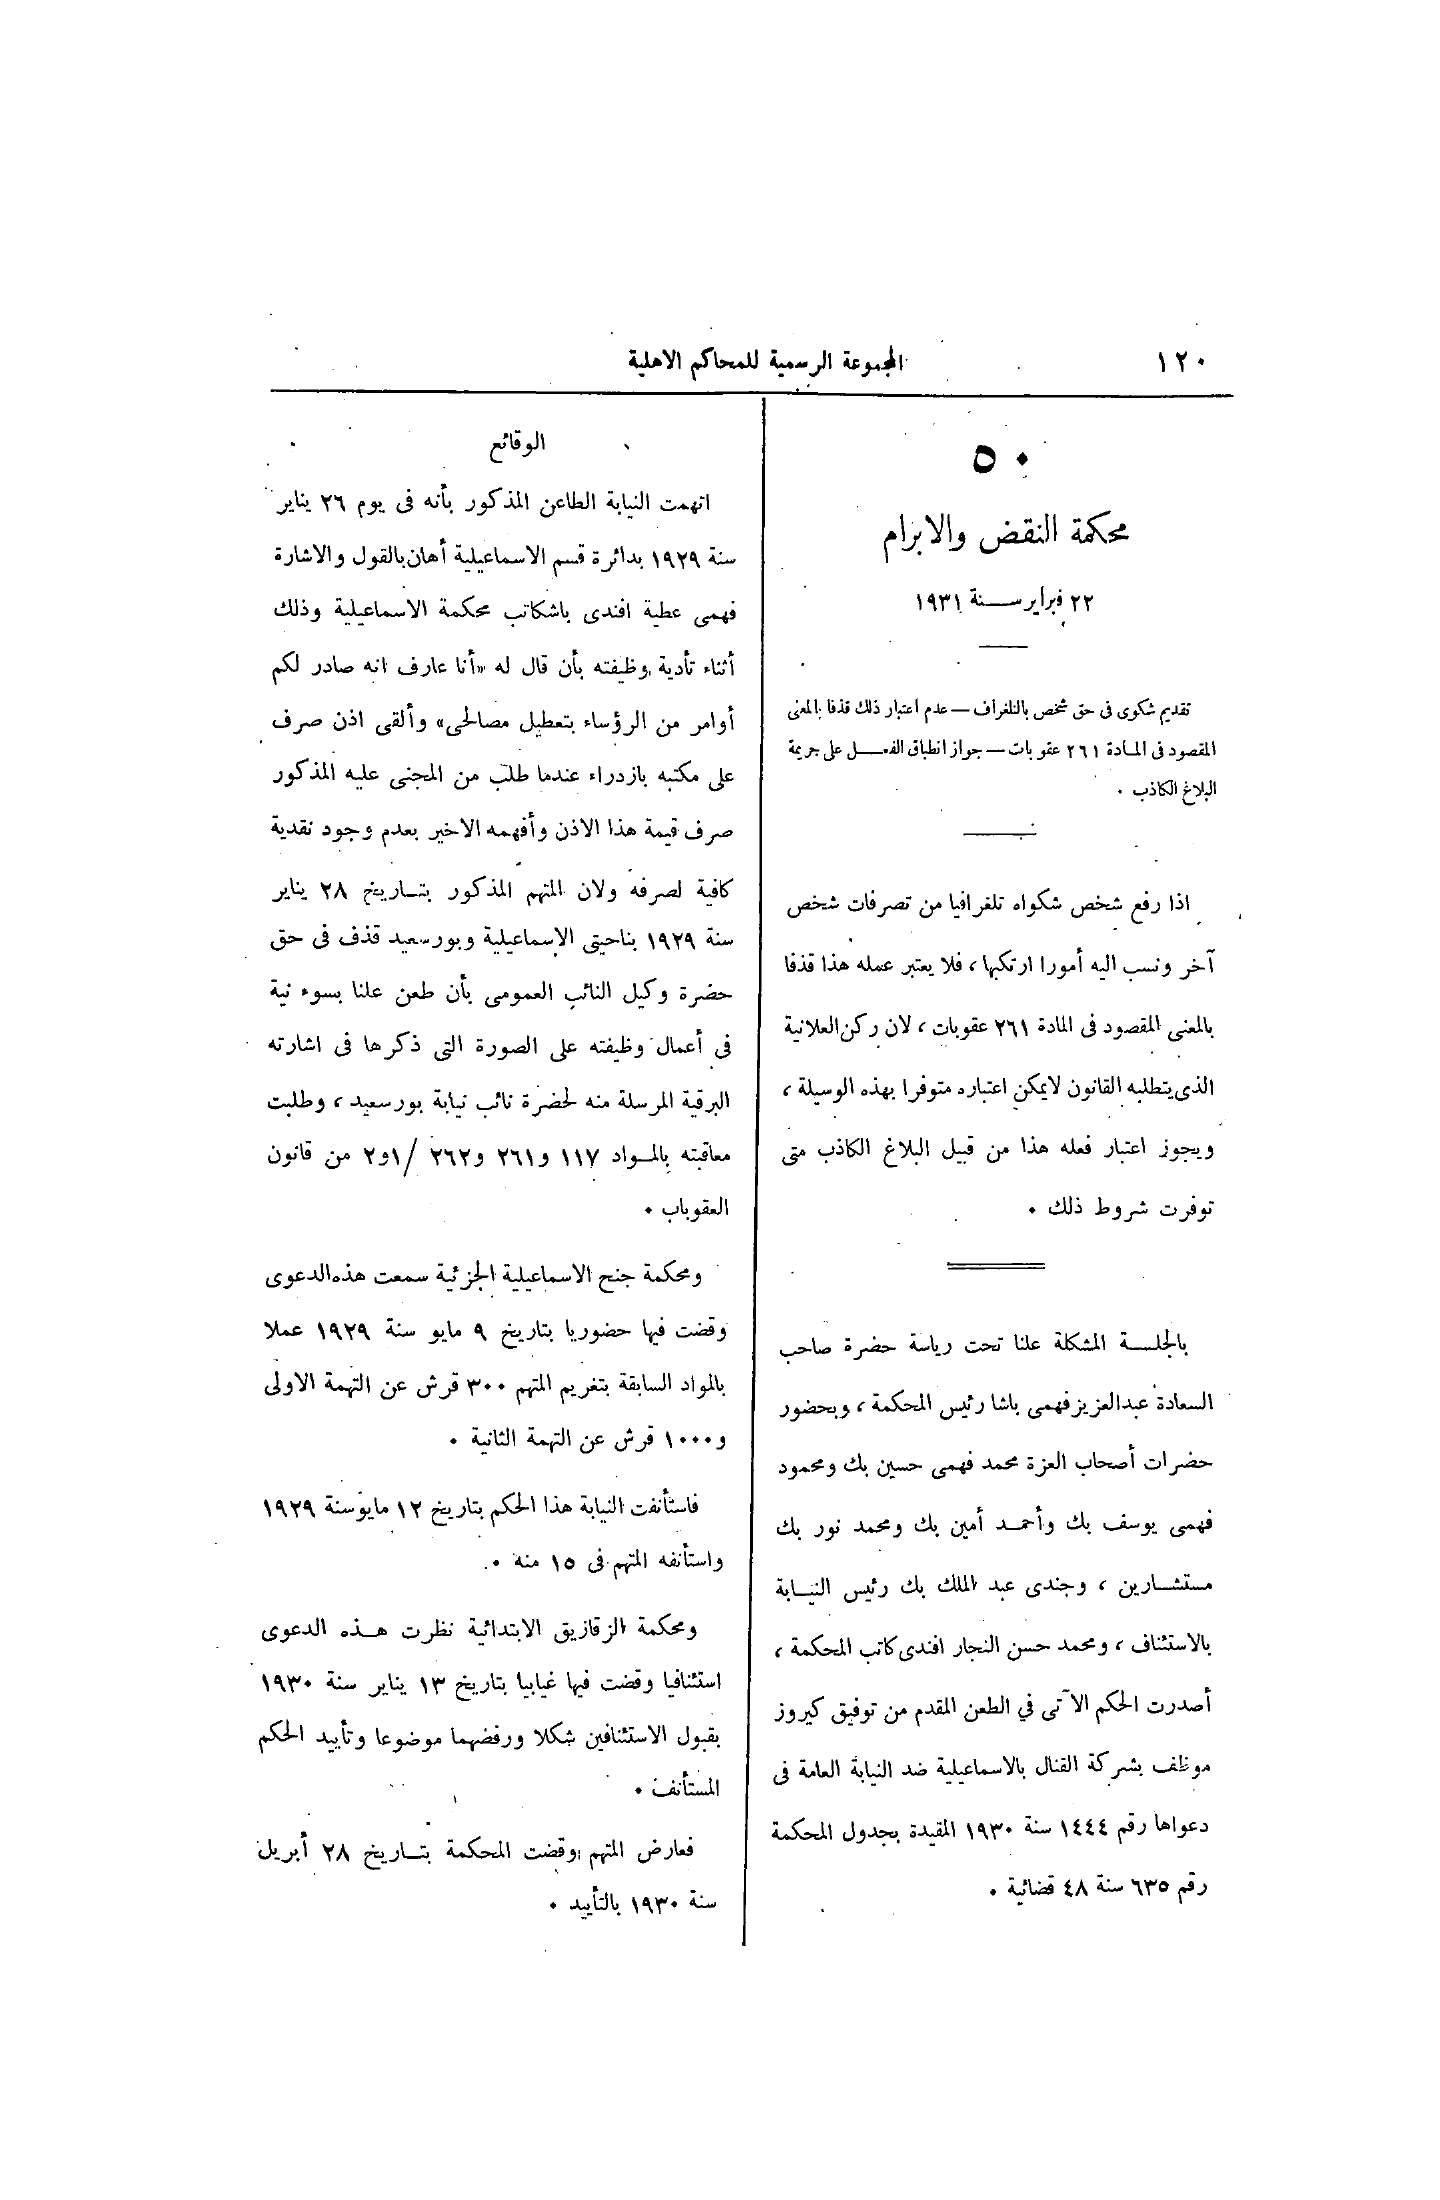 ١٢٠
المجموعة الرسمية للمحاكم الاهلية
٥٠
محكمة النقض والابرام
٢٢ فبراير سنة ١٩٣١
تقديم شكوى فى حق شخص بالتلغراف — عدم اعتبار ذلك قذفا بالمعنى
المقصود فى المادة ٢٦١ عقوبات — جواز انطباق الفعل على جريمة
البلاغ الكاذب ٠
اذا رفع شخص شكواه تلغرافيا من تصرفات شخص
آخر ونسب اليه أمورا ارتكبها ، فلا يعتبر عمله هذا قذفا
بالمعنى المقصود فى المادة ٢٦١ عقوبات ، لان ركن العلانية
الذى يتطلبه القانون لايمكن اعتباره متوفرا بهذه الوسيلة ،
ويجوز اعتبار فعله هذا من قبيل البلاغ الكاذب متى
توفرت شروط ذلك ٠
بالجلسة المشكلة علنا تحت رياسة حضرة صاحب
السعادة عبدالعزيز فهمى باشا رئيس المحكمة ، وبحضور
حضرات أصحاب العزة محمد فهمى حسين بك ومحمود
فهمى يوسف بك وأحمد أمين بك ومحمد نور بك
مستشارين ، وجندى عبد الملك بك رئيس النيابة
بالاستئناف ، ومحمد حسن النجار افندى كاتب المحكمة ،
أصدرت الحكم الآتى في الطعن المقدم من توفيق كيروز
موظف بشركة القنال بالاسماعيلية ضد النيابة العامة فى
دعواها رقم ١٤٤٤ سنة ١٩٣٠ المقيدة بجدول المحكمة
رقم ٦٣٥ سنة ٤٨ قضائية ٠
الوقائع
اتهمت النيابة الطاعن المذكور بأنه فى يوم ٢٦ يناير
سنة ١٩٢٩ بدائرة قسم الاسماعيلية أهان بالقول والاشارة
فهمى عطية افندى باشكاتب محكمة الاسماعيلية وذلك
أثناء تأدية وظيفته بأن قال له «أنا عارف انه صادر لكم
أوامر من الرؤساء بتعطيل مصالحى» وألقى اذن صرف
على مكتبه بازدراء عندما طلب من المجنى عليه المذكور
صرف قيمة هذا الاذن وأفهمه الاخير بعدم وجود نقدية
كافية لصرفه ولان المتهم المذكور بتاريخ ٢٨ يناير
سنة ١٩٢٩ بناحيتى الاسماعيلية وبورسعيد قذف فى حق
حضرة وكيل النائب العمومى بأن طعن علنا بسوء نية
فى أعمال وظيفته على الصورة التى ذكرها فى اشارته
البرقية المرسلة منه لحضرة نائب نيابة بورسعيد ، وطلبت
معاقبته بالمواد ١١٧ و٢٦١ و٢٦٢ /١و٢ من قانون
العقوباب ٠
ومحكمة جنح الاسماعيلية الجزئية سمعت هذه الدعوى
وقضت فيها حضوريا بتاريخ ٩ مايو سنة ١٩٢٩ عملا
بالمواد السابقة بتغريم المتهم ٣٠٠ قرش عن التهمة الاولى
و١٠٠٠ قرش عن التهمة الثانية ٠
فاستأنفت النيابة هذا الحكم بتاريخ ١٢ مايو سنة ١٩٢٩
واستأنفه المتهم فى ١٥ منه ٠
ومحكمة الزقازيق الابتدائية نظرت هذه الدعوى
استئنافيا وقضت فيها غيابيا بتاريخ ١٣ يناير سنة ١٩٣٠
بقبول الاستئنافين شكلا ورفضهما موضوعا وتأييد الحكم
المستأنف ٠
فعارض المتهم وقضت المحكمة بتاريخ ٢٨ أبريل
سنة ١٩٣٠ بالتأييد ٠